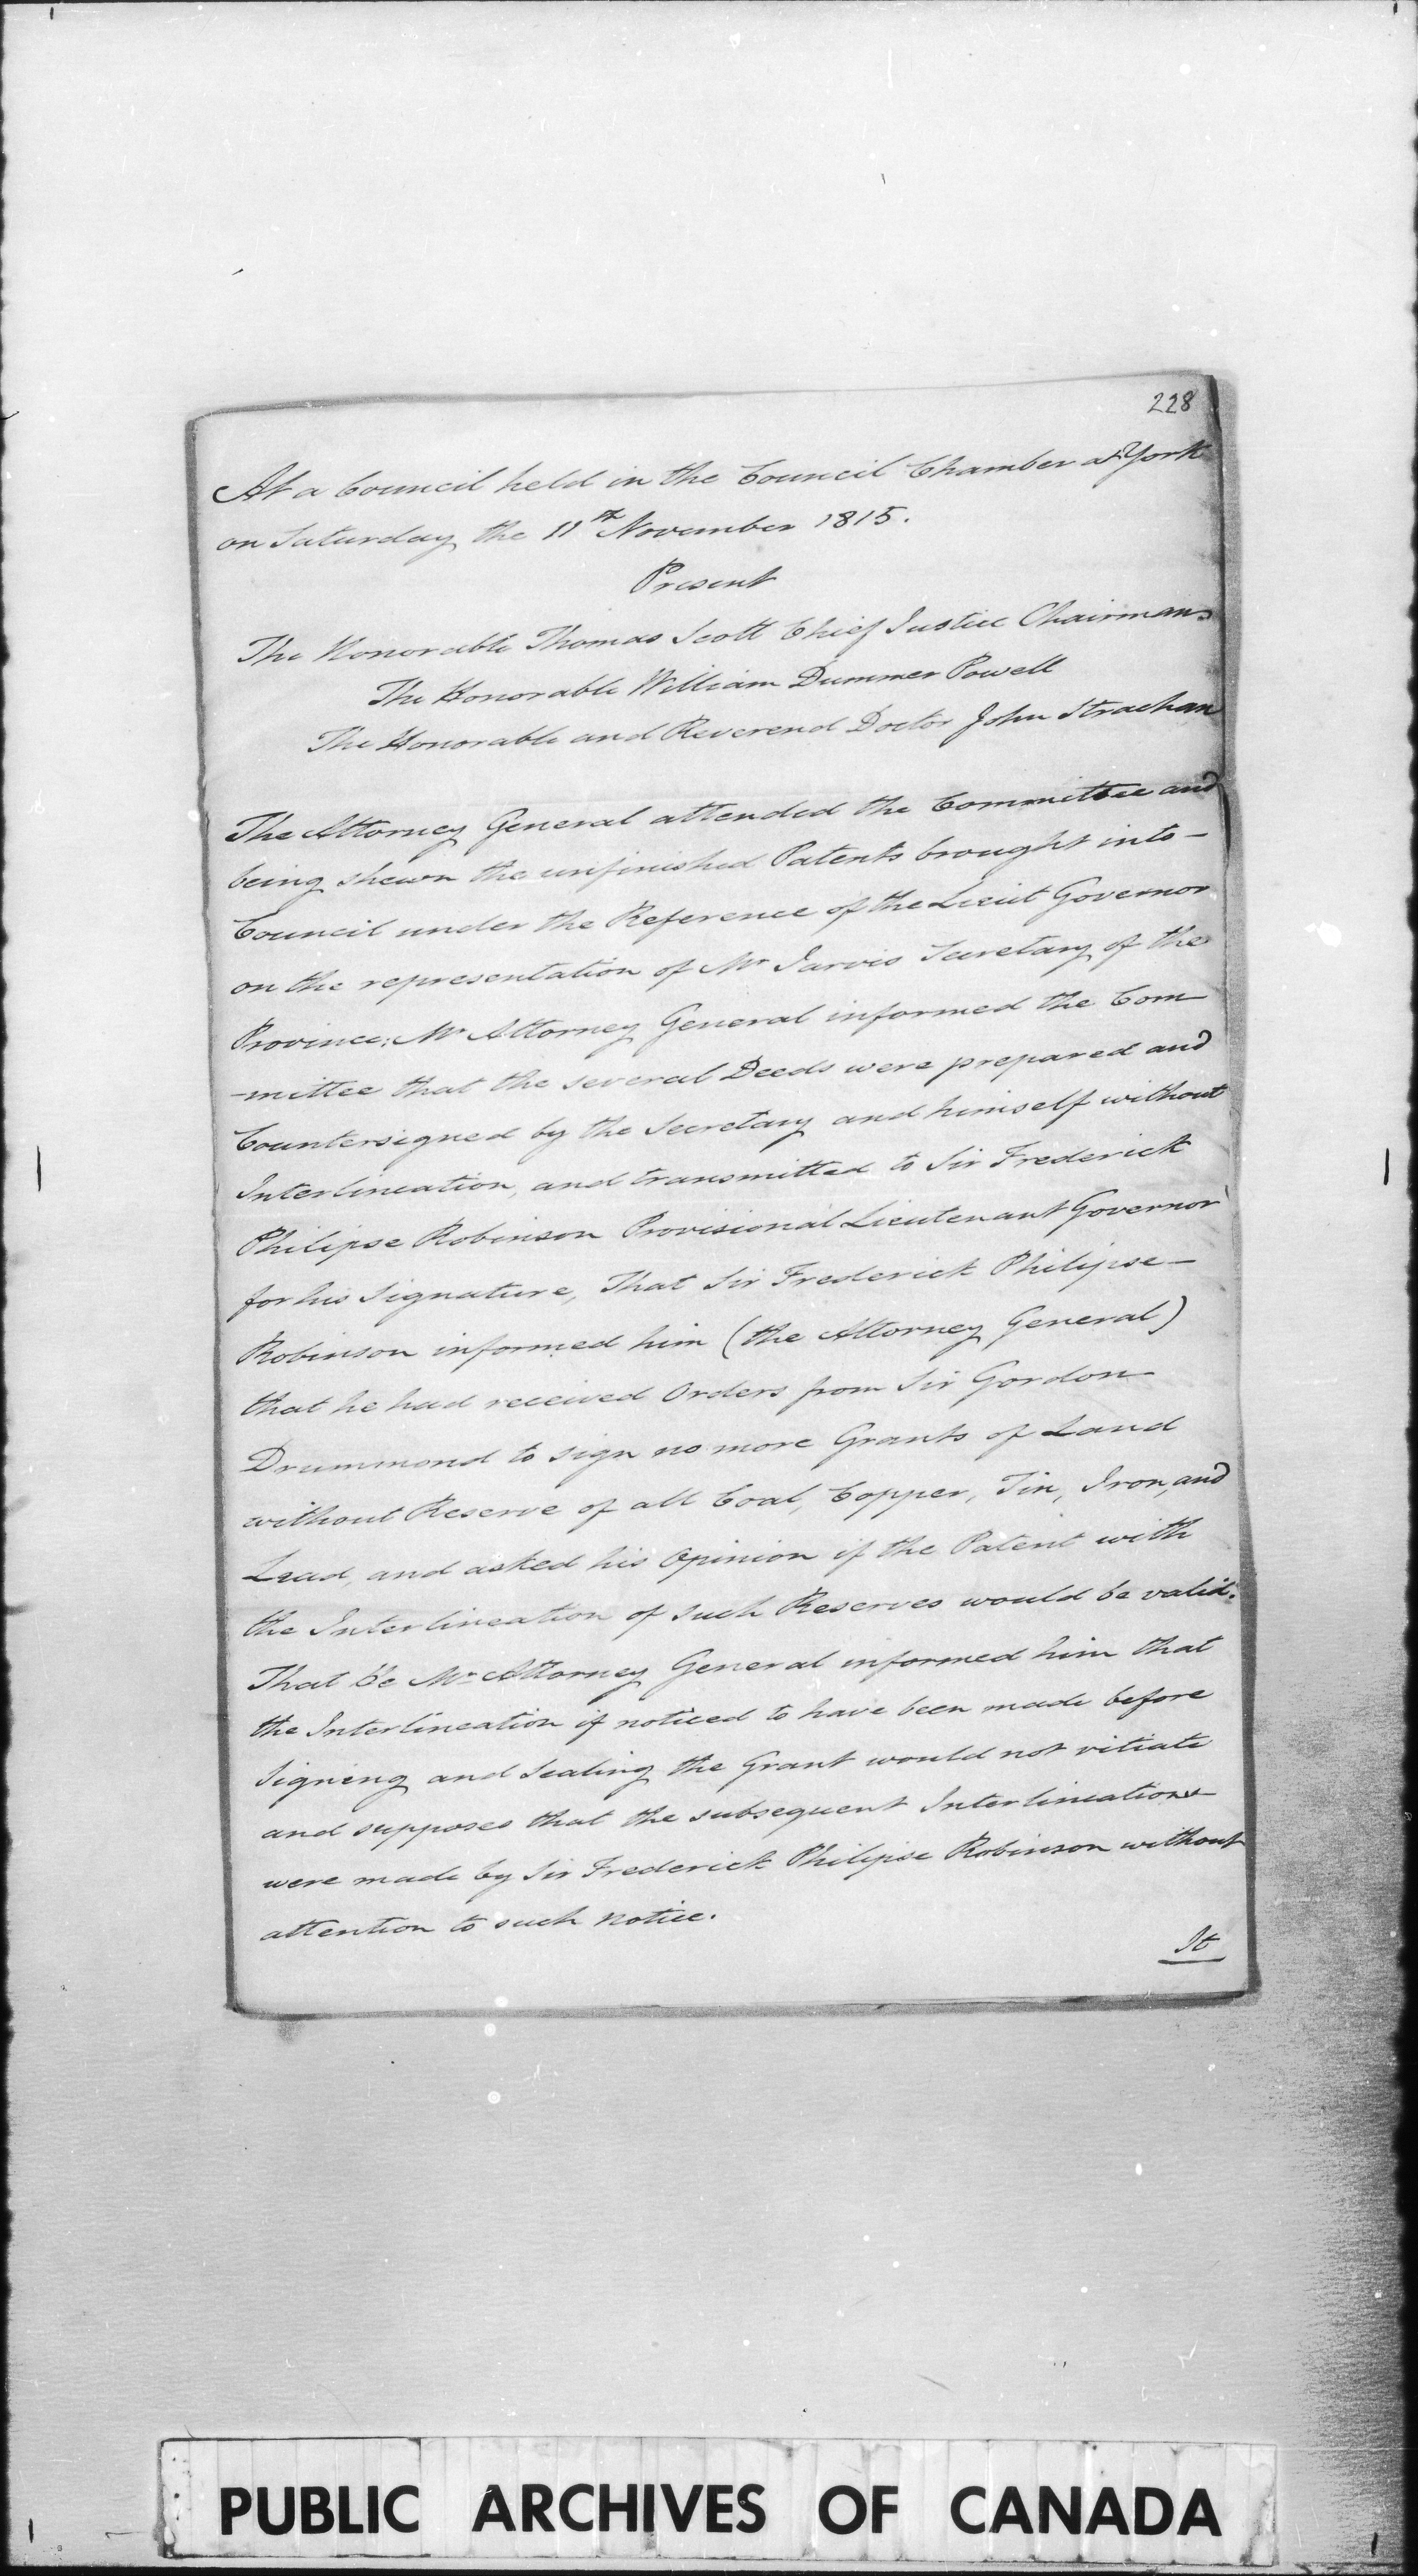 228
At a Council held in the Council Chamber at York
on Saturday the 11th November 1815.
Present
The Honorable Thomas Scott Chief Justice Chairman
The Honorable William Dummer Powell
The Honorable and Reverend Doctor John Strachan
The Attorney General attended the Committee and
being shewn the unfinished Patents brought into -
Council under the Reference of the Lieut Governor
on the representation of Mr Jarvis Secretary of the
Province; Mr Attorney General informed the Com
-mittee that the several Deeds were prepared and
Countersigned by the Secretary and himself without
Interlineation, and transmitted to Sir Frederick
Philipse Robinson Provisional Lieutenant Governor
for his Signature, That Sir Frederick Philipse -
Robinson informed him (the Attorney General)
that he had received Orders from Sir Gordon
Drummond to sign no more Grants of Land
without Reserve of all Coal, Copper, Tin, Iron, and
Lead, and asked his Opinion if the Patent with
the Interlineation of such Reserves would be valid.
That he Mr Attorney General informed him that
the Interlineation if noticed to have been made before
Signing and Sealing the Grant would not vitiate
and supposes that the subsequent Interlineations
were made by Sir Frederick Philipse Robinson without
attention to such notice.
It
PUBLIC ARCHIVES OF CANADA